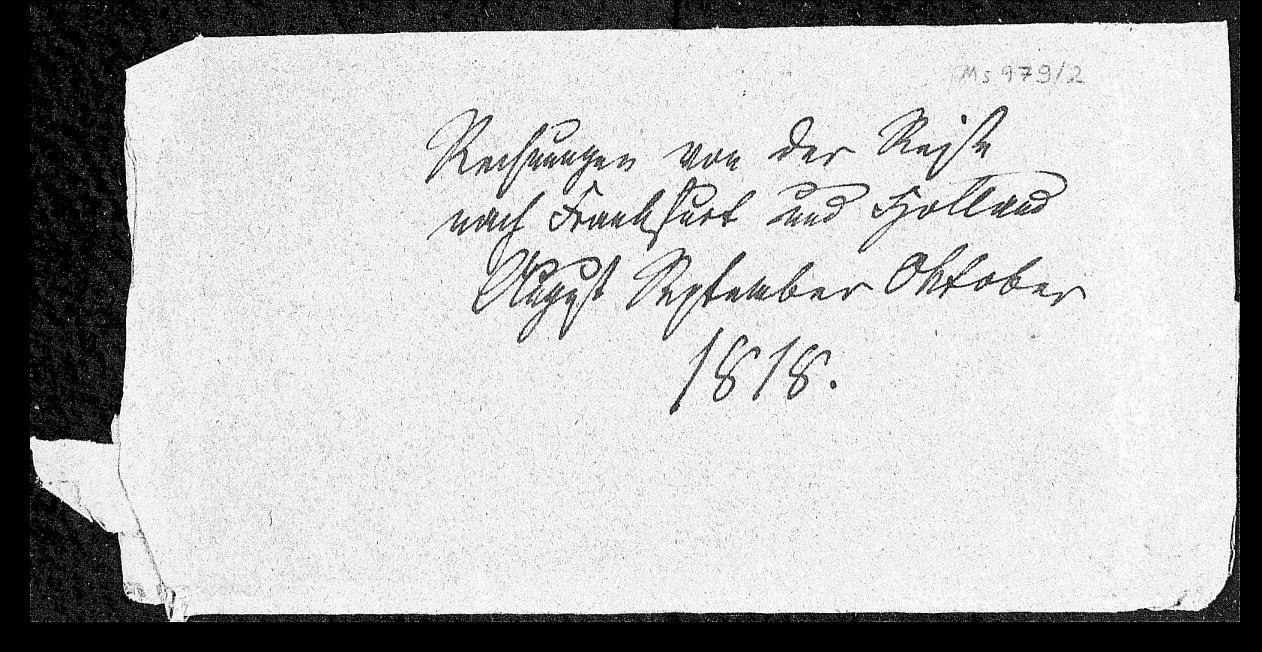 Ms 979/2
Rechnungen von der Reise
nach Frankfurt und Holland
August September Oktober
1818.